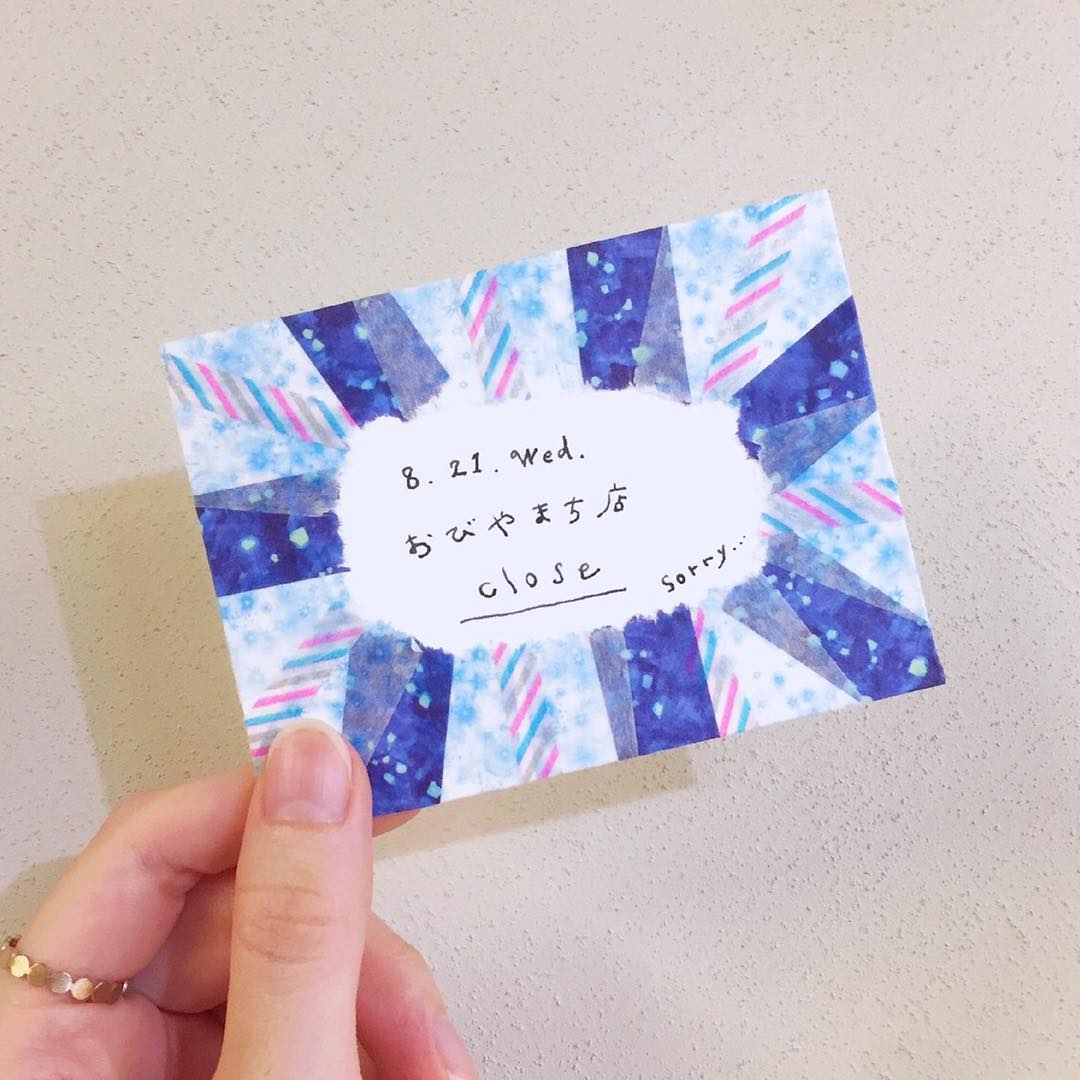 8. 21. Wed.
おびやまち店
close
sorry...